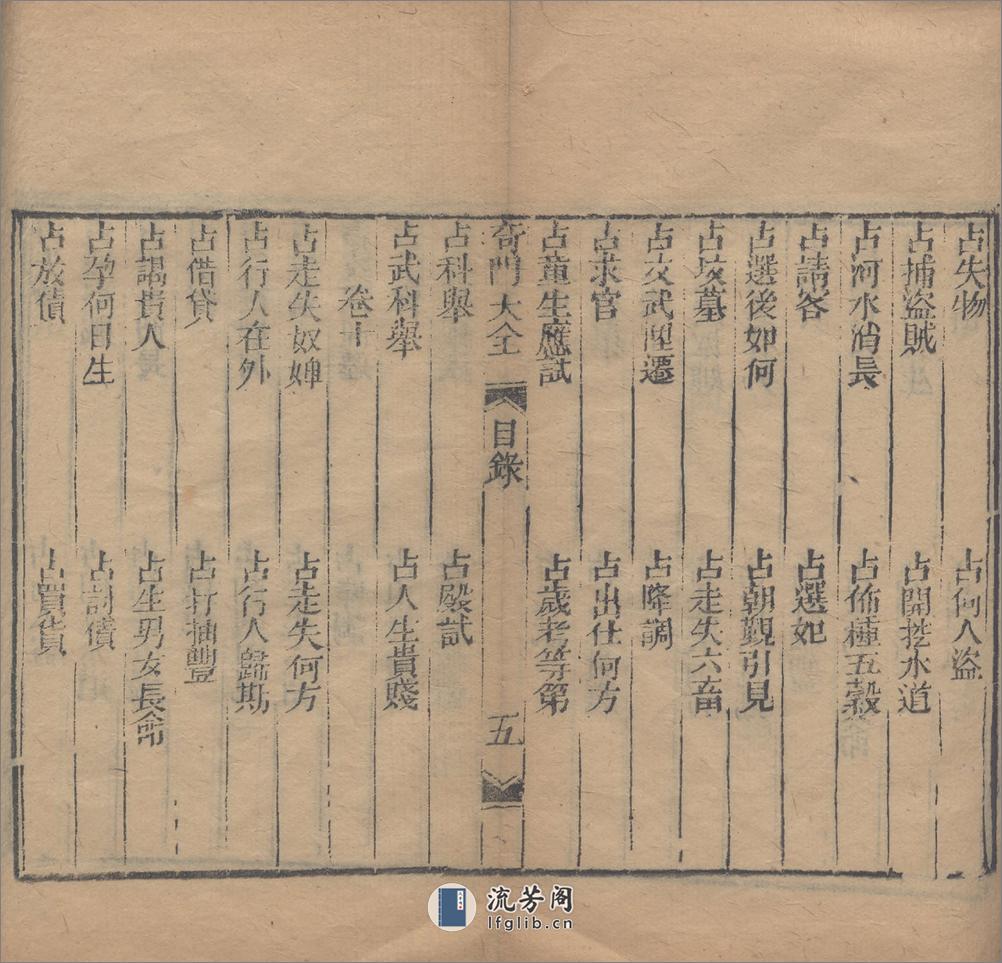 占失物　占何人盜
占捕盜賊　占開挖水道
占河水消長　占佈種五穀
占請客　占選妃
占選後如何　占朝覲引見
占坟墓　占走失六畜
占文武陞遷　占降調
占求官　占出仕何方
占童生應試　占歲考等第
奇門大全　目錄　五
占科舉　占殿試
占武科舉　占人生貴賤
卷十
占走失奴婢　占走失何方
占行人在外　占行人歸期
占借貸　占打抽豐
占謁貴人　占生男女長命
占孕何日生　占討債
占放債　占買貨
流芳阁
lfglib.cn